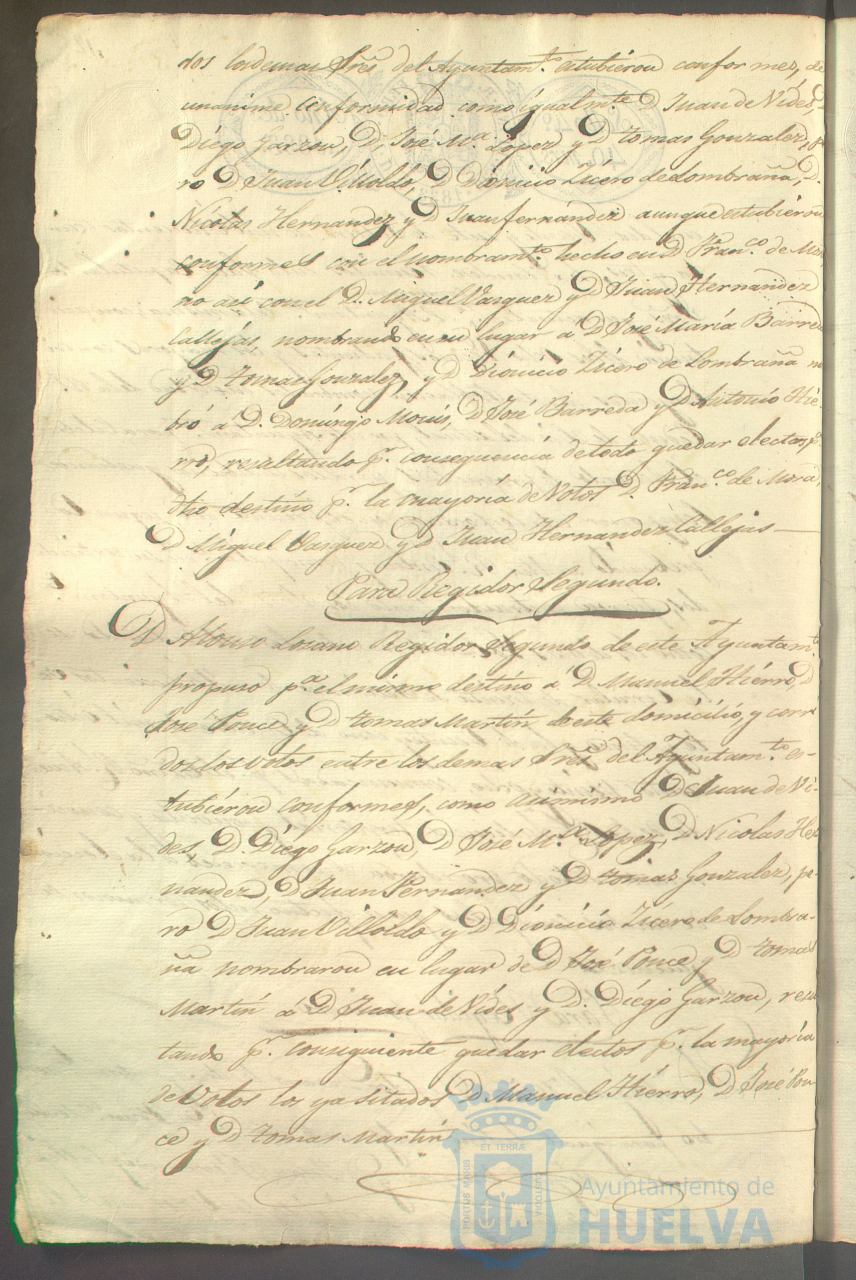 dos losdemas Srẽs del Ayuntam.to estubiéron conformes, de
unanime conformidad como igualm.te D Juan de Vides,
Diego Garzon, D, José M.a Lopez y D tomas Gonzalez, pe
ro D Juan Villoldo, D Dionicio Licero de Lombraña, D.
Nicolas Hernandez y D Juan fernandez aunque estubiéron
conformes con el nombram.to hecho en D Fran.co de Mora
no asi con el D. Miguel Vasquez y D Juan Hernandez
Callejas, nombrando en su lugar á D José María Barreda
y D tomas Gonzalez, y D Dionicio Licero de Lombraña no
bró á D. Domíngo Mouis, D José Barreda y D Antonio Hié-
rro, resultando p.r consequencia de todo quedar electos p.a
dho destíno p.r la mayoría de Votos D. Fran.co de Mora,
D Miguel Vasquez y D Juan Hernandez Callejas
Para Regidor Segundo.
D Alonso Lozano Regidor segundo de este Ayuntam.to
propuso p.a el mismo destino á D Manuel Hiérro, D
José Ponce y D tomas Martín de este domicilio, y corri
dos los votos entre los demas Srẽs del Ayuntam.to es-
tubiéron conformes, como asimismo D Juan de Vi-
des, D Diégo Garzon, D José M.a Lopez, D Nicolas Her
nandez, D Juan Fernandez y D tomas Gonzalez, pe-
ro D Juan Villoldo y D Dionicio Licero de Lombra-
ña nombraron en lugar de D José Ponce y D tomas
Martín á D Juan de Vides y D. Diégo Garzon, resul
tando p.r consiguiente quedar electos p.r la mayoría
de Votos los ya sitados D Manuel Hiérro, D José Pon
ce y D tomas Martín
PORTUS MARIS ET TERRÆ CUSTODIA
Ayuntamiento de
HUELVA